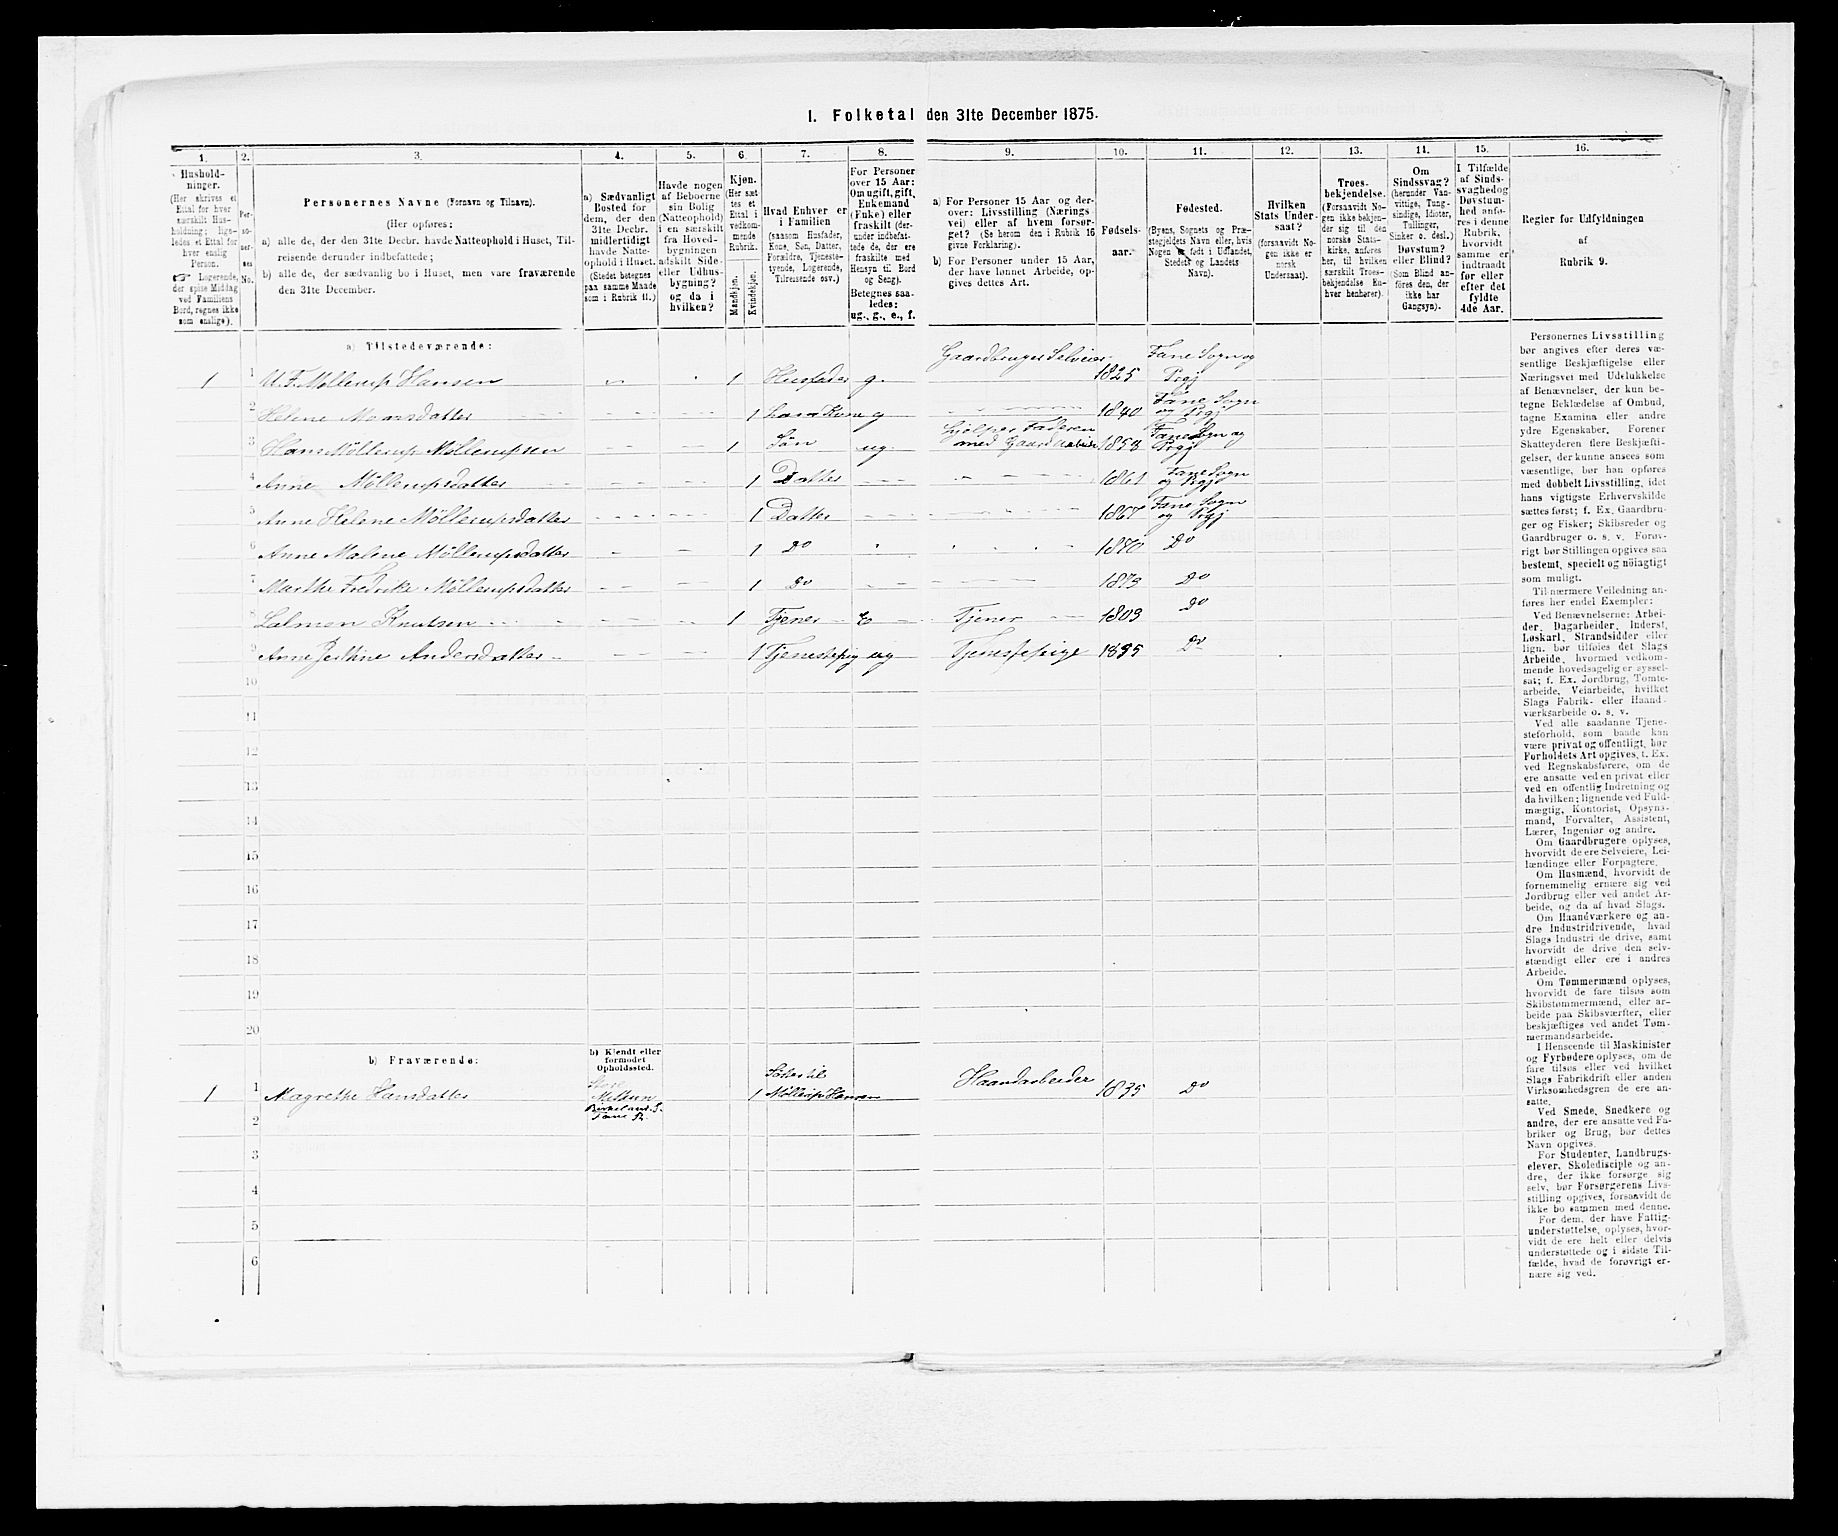 I. Folketal den 31te December 1875.
1. 2. 3. 4. 5. 6. 7. 8. 9. 10. 11. 12. 13. 14. 15. 16.
Hushold-
ninger.
(Her skrives et
Ettal for hver
særskilt Hus-
holdning; lige-
ledes et Ettal for
hver enslig
Person.
☞ Logerende,
der spise Middag
ved Familiens
Bord, regnes ikke
som enslige).
Per-
so-
ner-
nes
No.
Personernes Navne (Fornavn og Tilnavn).
(Her opføres:
a) alle de, der den 31te Decbr. havde Natteophold i Huset, Til-
reisende derunder indbefattede;
b) alle de, der sædvanlig bo i Huset, men vare fraværende
den 31te December.
a) Sædvanligt
Bosted for
dem, der den
31te Decbr.
midlertidigt
havde Natte-
ophold i Huset.
(Stedet betegnes
paa samme Maade
som i Rubrik 11.)
Havde nogen
af Beboerne
sin Bolig
(Natteophold)
i en særskilt
fra Hoved-
bygningen
adskilt Side-
eller Udhus-
bygning?
og da i
hvilken?
Kjøn.
(Her sæt-
tes et
Ettal i
vedkom-
mende
Rubrik.
Mandkjøn.
Kvindekjøn.
Hvad Enhver er
i Familien
(saasom Husfader,
Kone, Søn, Datter,
Forældre, Tjeneste-
tyende, Logerende,
Tilreisende osv.)
For Personer
over 15 Aar:
Om ugift, gift,
Enkemand
(Enke) eller
fraskilt (der-
under indbefat-
tede de, der ere
fraskilte med
Hensyn til Bord
og Seng).
Betegnes saa-
ledes:
ug., g., e., f.
a) For Personer 15 Aar og der-
over: Livsstilling (Nærings-
vei) eller af hvem forsør-
get? (Se herom den i Rubrik 16
givne Forklaring).
b) For Personer under 15 Aar,
der have lønnet Arbeide, op-
gives dettes Art.
Fødsels-
aar.
Fødested.
(Byens, Sognets og Præ-
stegjeldets Navn eller, hvis
Nogen er født i Udlandet,
Stedets og Landets
Navn).
Hvilken
Stats Under-
saat?
(forsaavidt No-
gen ikke er
norsk
Undersaat).
Troes-
bekjendelse.
(Forsaavidt No-
gen ikke bekjen-
der sig til den
norske Stats-
kirke, anføres
her, til hvilken
særskilt Troes-
bekjendelse En-
hver henhører).
Om
Sindssvag?
(herunder Van-
vittige, Tung-
sindige, Idioter,
Tullinger,
Sinker o. desl.)
Døvstum?
eller Blind?
(Som Blind an-
føres den, der
ikke har
Gangsyn).
I Tilfælde
af Sinds-
svaghed og
Døvstum-
hed anfø-
res i denne
Rubrik,
hvorvidt
samme er
indtraadt
før eller
efter det
fyldte
4de Aar.
Regler for Udfyldningen
af
Rubrik 9.
a) Tilstedeværende:
1 1 U. F. Møllerup Hansen 1 Husfader g. Gaardbruger Selveier 1825 Fane Sogn og Prgj
2 Helene Monsdatter 1 hans Kone g 1840 Fane Sogn og Prgj
3 Hans Møllerup Møllerupsen 1 Søn ug hjelper Faderen med Gaardsarbeide 1858 Fane Sogn og Prgj
4 Anne Møllerupsdatter 1 Datter 1861 Fane Sogn og Prgj
5 Anne Helene Møllerupsdatter 1 Datter 1867 Fane Sogn og Prgj
6 Anne Malene Møllerupsdatter 1 Do 1870 Do
7 Marthe Fredrike Møllerupsdatter 1 Do 1873 Do
8 Salmon Knutsen 1 Tjener E Tjener 1803 Do
9 Anne Andersdatter 1 Tjenestepig ug Tjenestepige 1835 Do
10
11
12
13
14
15
16
17
18
19
20
b) Fraværende:
b) Kjendt eller
formodet
Opholdssted.
1 1 Magrethe Hansdatter 1 Søster til Møllerup Hansen Haandarbeider 1835 Do
2
3
4
5
6
Personernes Livsstilling
bør angives efter deres væ-
sentlige Beskjæftigelse eller
Næringsvei med Udelukkelse
af Benævnelser, der kun be-
tegne Beklædelse af Ombud,
tagne Examina eller andre
ydre Egenskaber. Forener
Skatteyderen flere Beskjæfti-
gelser, der kunne ansees som
væsentlige, bør han opføres
med dobbelt Livsstilling, idet
hans vigtigste Erhvervskilde
sættes først; f. Ex. Gaardbru-
ger og Fisker; Skibsreder og
Gaardbruger o. s. v. Forøv-
rigt bør Stillingen opgives saa
bestemt, specielt og nøiagtigt
som muligt.
Til nærmere Veiledning an-
føres her endel Exempler:
Ved Benævnelserne: Arbei-
der, Dagarbeider, Inderst,
Løskarl, Strandsidder eller
lign. bør tilføies det Slags
Arbeide, hvormed vedkom-
mende hovedsagelig er syssel-
sat; f. Ex. Jordbrug, Tomte-
arbeide, Veiarbeide, hvilket
Slags Fabrik- eller Haand-
værksarbeide o. s. v.
Ved alle saadanne Tjene-
steforhold, som baade kan
være privat og offentligt, bør
Forholdets Art opgives, t. Ex.
ved Regnskabsførere, om de
ere ansatte ved en privat eller
ved en offentlig Indretning og
da hvilken; lignende ved Fuld-
mægtig, Kontorist, Opsyns-
mand, Forvalter, Assistent,
Lærer, Ingeniør og andre.
Om Gaardbrugere oplyses,
hvorvidt de ere Selveiere, Lei-
lændinge eller Forpagtere.
Om Husmænd, hvorvidt de
fornemmelig ernære sig ved
Jordbrug eller ved andet Ar-
beide, og da af hvad Slags.
Om Haandværkere og an-
dre Industridrivende, hvad
Slags Industri de drive, samt
hvorvidt de drive den selv-
stændigt eller ere i andres
Arbeide.
Om Tømmermænd oplyses,
hvorvidt de fare tilsøs som
Skibstømmermænd, eller ar-
beide paa Skibsværfter, eller
beskjæftiges ved andet Tøm-
mermandsarbeide.
I Henseende til Maskinister
og Fyrbødere oplyses, om de
fare tilsøs eller ved hvilket
Slags Fabrikdrift eller anden
Virksomhedsgren de ere an-
satte.
Ved Smede, Snedkere og
andre, der ere ansatte ved Fa-
briker og Brug, bør dettes
Navn opgives.
For Studenter, Landbrugs-
elever, Skoledisciple og an-
dre, der ikke forsørge sig
selv, bør Forsørgerens Livs-
stilling opgives, forsaavidt de
ikke bo sammen med denne.
For dem, der have Fattig-
understøttelse, oplyses, hvor-
vidt de ere helt eller delvis
understøttede og i sidste Til-
fælde, hvad de forøvrigt er-
nære sig ved.